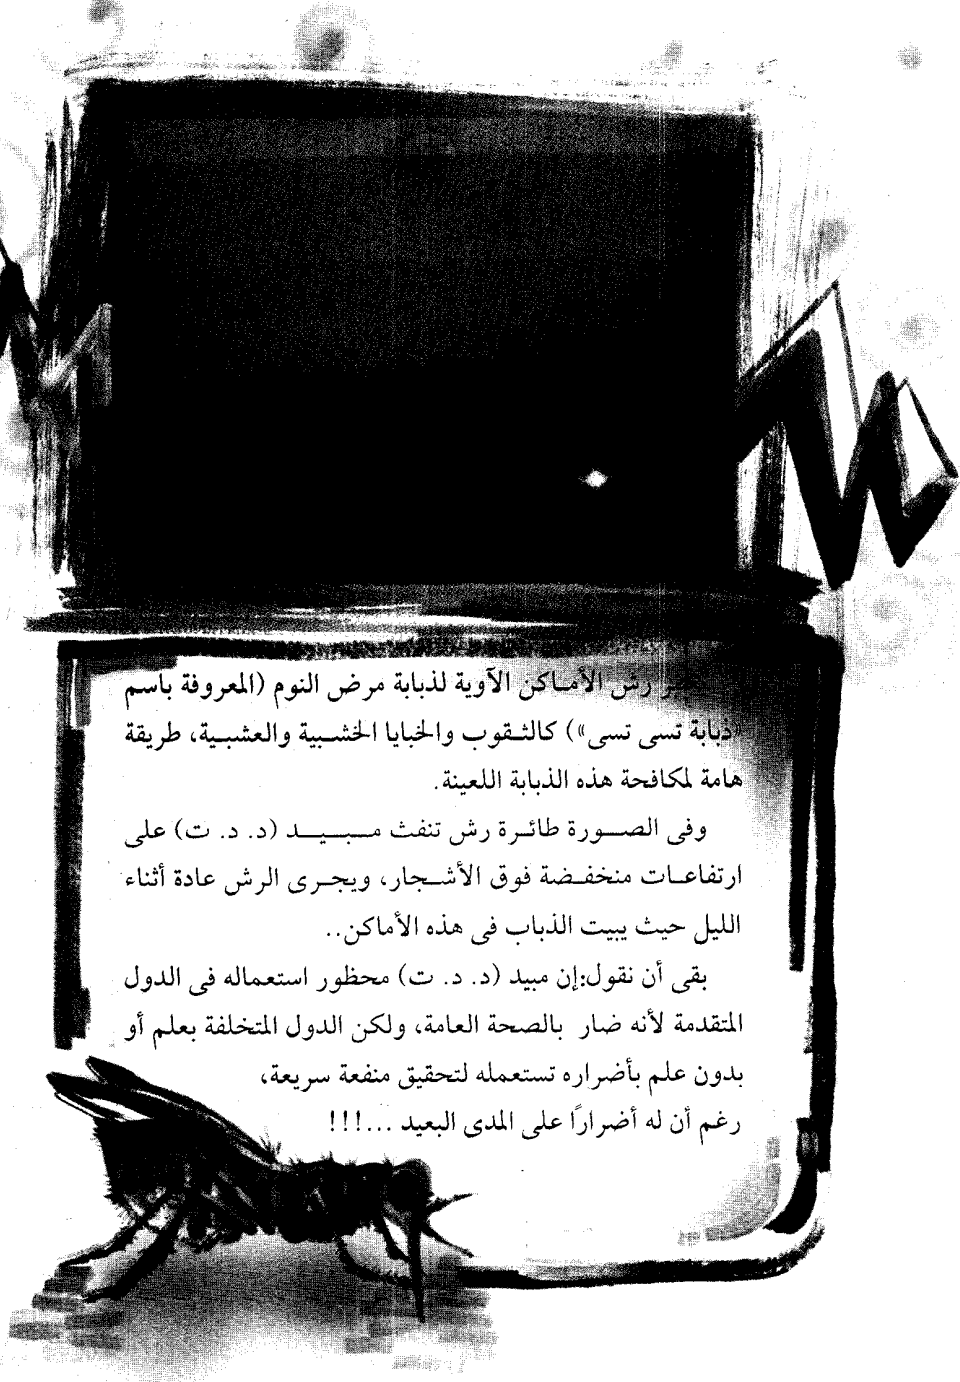 رش الأماكن الآوية لذبابة مرض النوم (المعروفة باسم
«ذبابة تسى تسى») كالثقوب والخبايا الخشبية والعشبية، طريقة
هامة لمكافحة هذه الذبابة اللعينة.
وفى الصورة طائرة رش تنفث مبيد (د. د. ت) على
ارتفاعات منخفضة فوق الأشجار، ويجرى الرش عادة أثناء
الليل حيث يبيت الذباب فى هذه الأماكن..
بقى أن نقول:إن مبيد (د. د. ت) محظور استعماله فى الدول
المتقدمة لأنه ضار بالصحة العامة، ولكن الدول المتخلفة بعلم أو
بدون علم بأضراره تستعمله لتحقيق منفعة سريعة،
رغم أن له أضرارًا على المدى البعيد ...!!!